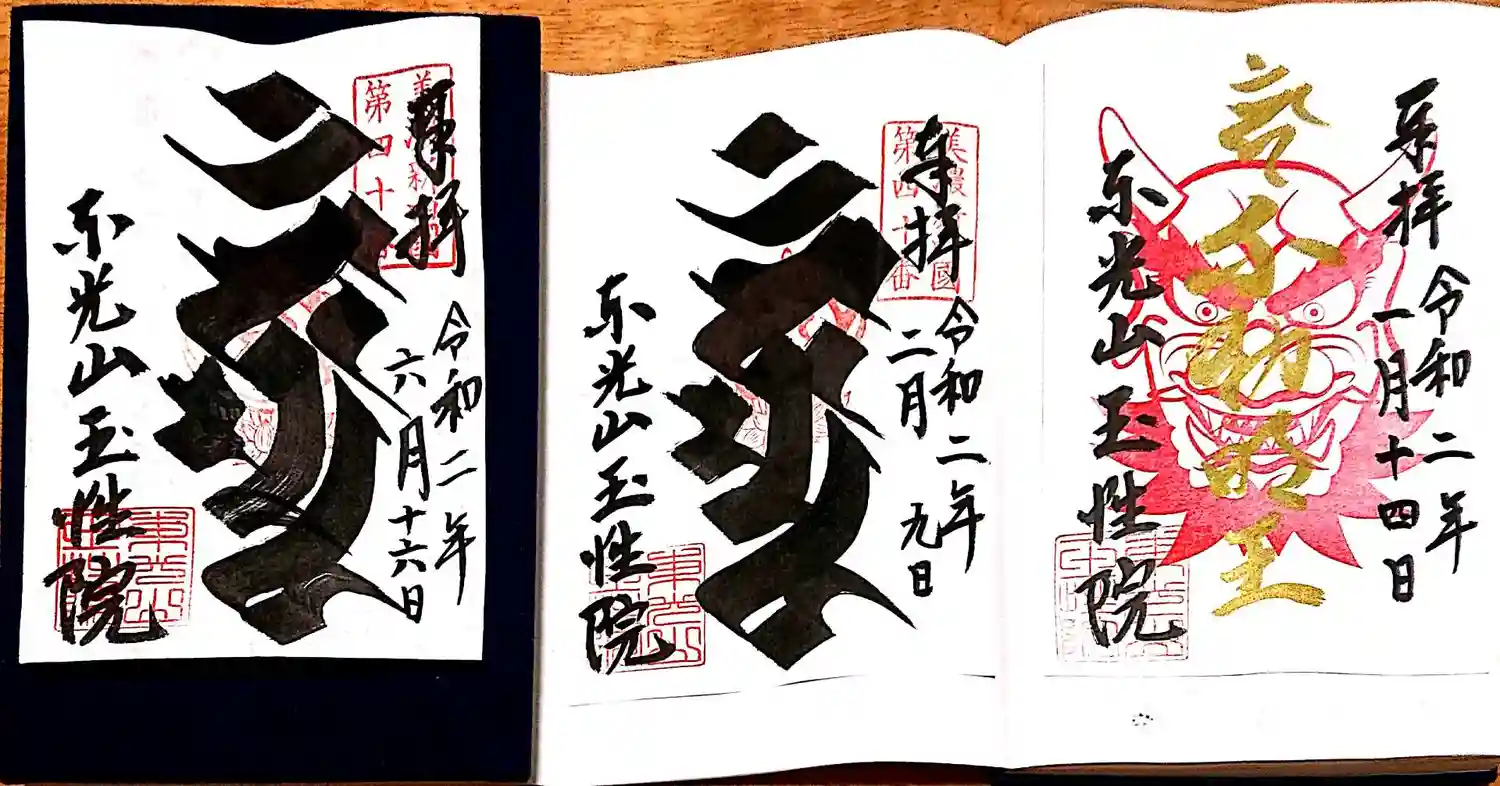 奉拝
令和二年
六月十六日
第四十
東光山玉性院
奉拝
令和二年
二月九日
第四十番
東光山玉性院
奉拝
令和二年
一月十四日
不動明王
東光山玉性院